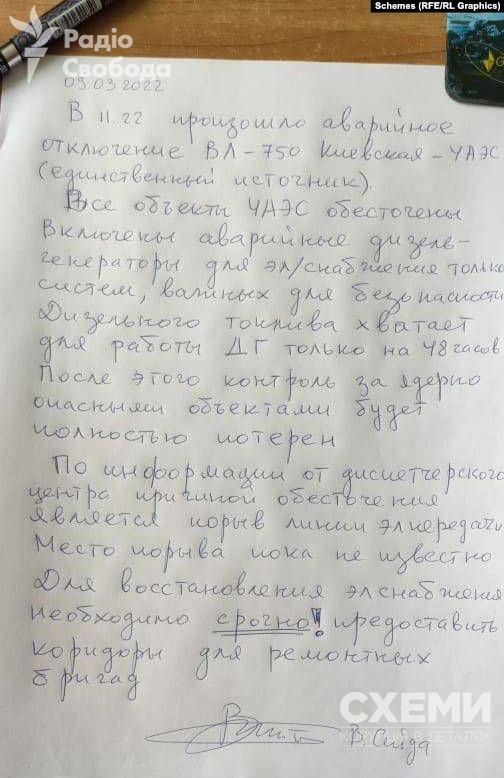 Schemes (RFE/RL Graphics)
Радіо
Свобода
09.03.2022
В 11.22 произошло аварийное
отключение ВЛ-750 Киевская-ЧАЭС
(единственный источник).
Все объекты ЧАЭС обесточены
Включены аварийные дизель-
генераторы для эл/снабжения только
систем, важных для безопасности
Дизельного топлива хватает
для работы ДГ только на 48 часов.
После этого контроль за ядерно
опасными объектами будет
полностью потерян
По информации от диспетчерского
центра причиной обесточения
является порыв линии элпередачи
Место порыва пока не известно
Для восстановления элснабжения
необходимо срочно! предоставить
коридоры для ремонтных
бригад
В. Сида
СХЕМИ
КОРУПЦІЯ В ДЕТАЛЯХ